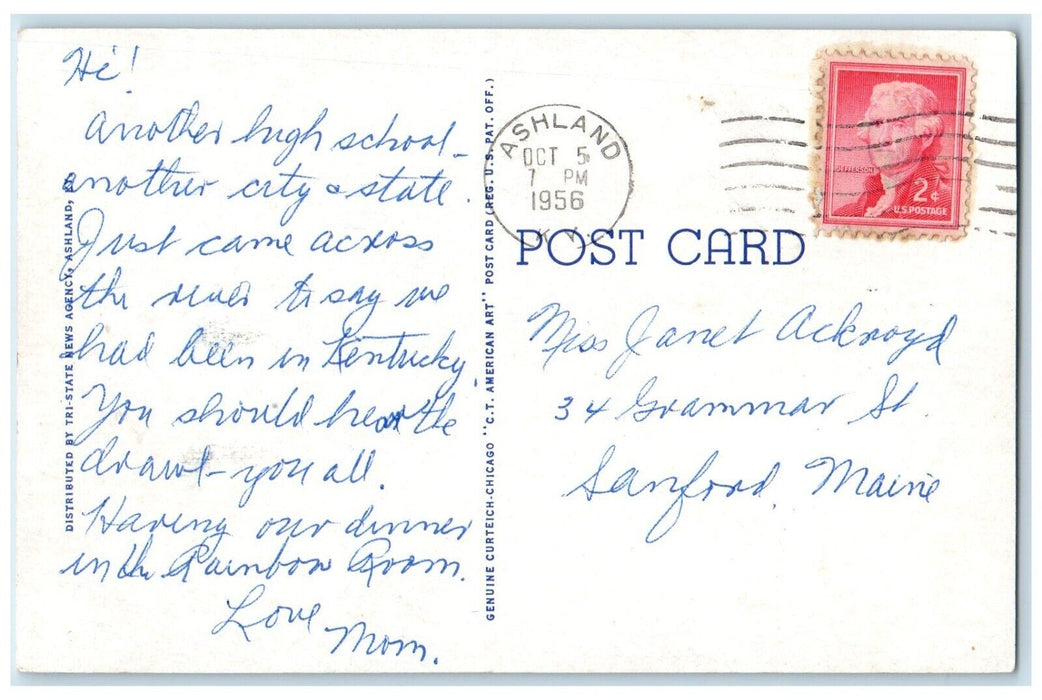 Hi!
Another high school -
another city & state.
Just came across
the river to say we
had been in Kentucky.
You should hear the
drawl - you all.
Having our dinner
in the Rainbow Room.
Love
Mom.
DISTRIBUTED BY TRI-STATE NEWS AGENCY, ASHLAND, KY.
GENUINE CURTEICH-CHICAGO "C.T. AMERICAN ART" POST CARD (REG. U.S. PAT. OFF.)
ASHLAND
OCT 5
7 PM
1956
KY.
JEFFERSON
2¢
U.S. POSTAGE
POST CARD
Miss Janet Ackroyd
34 Grammar St.
Sanford, Maine